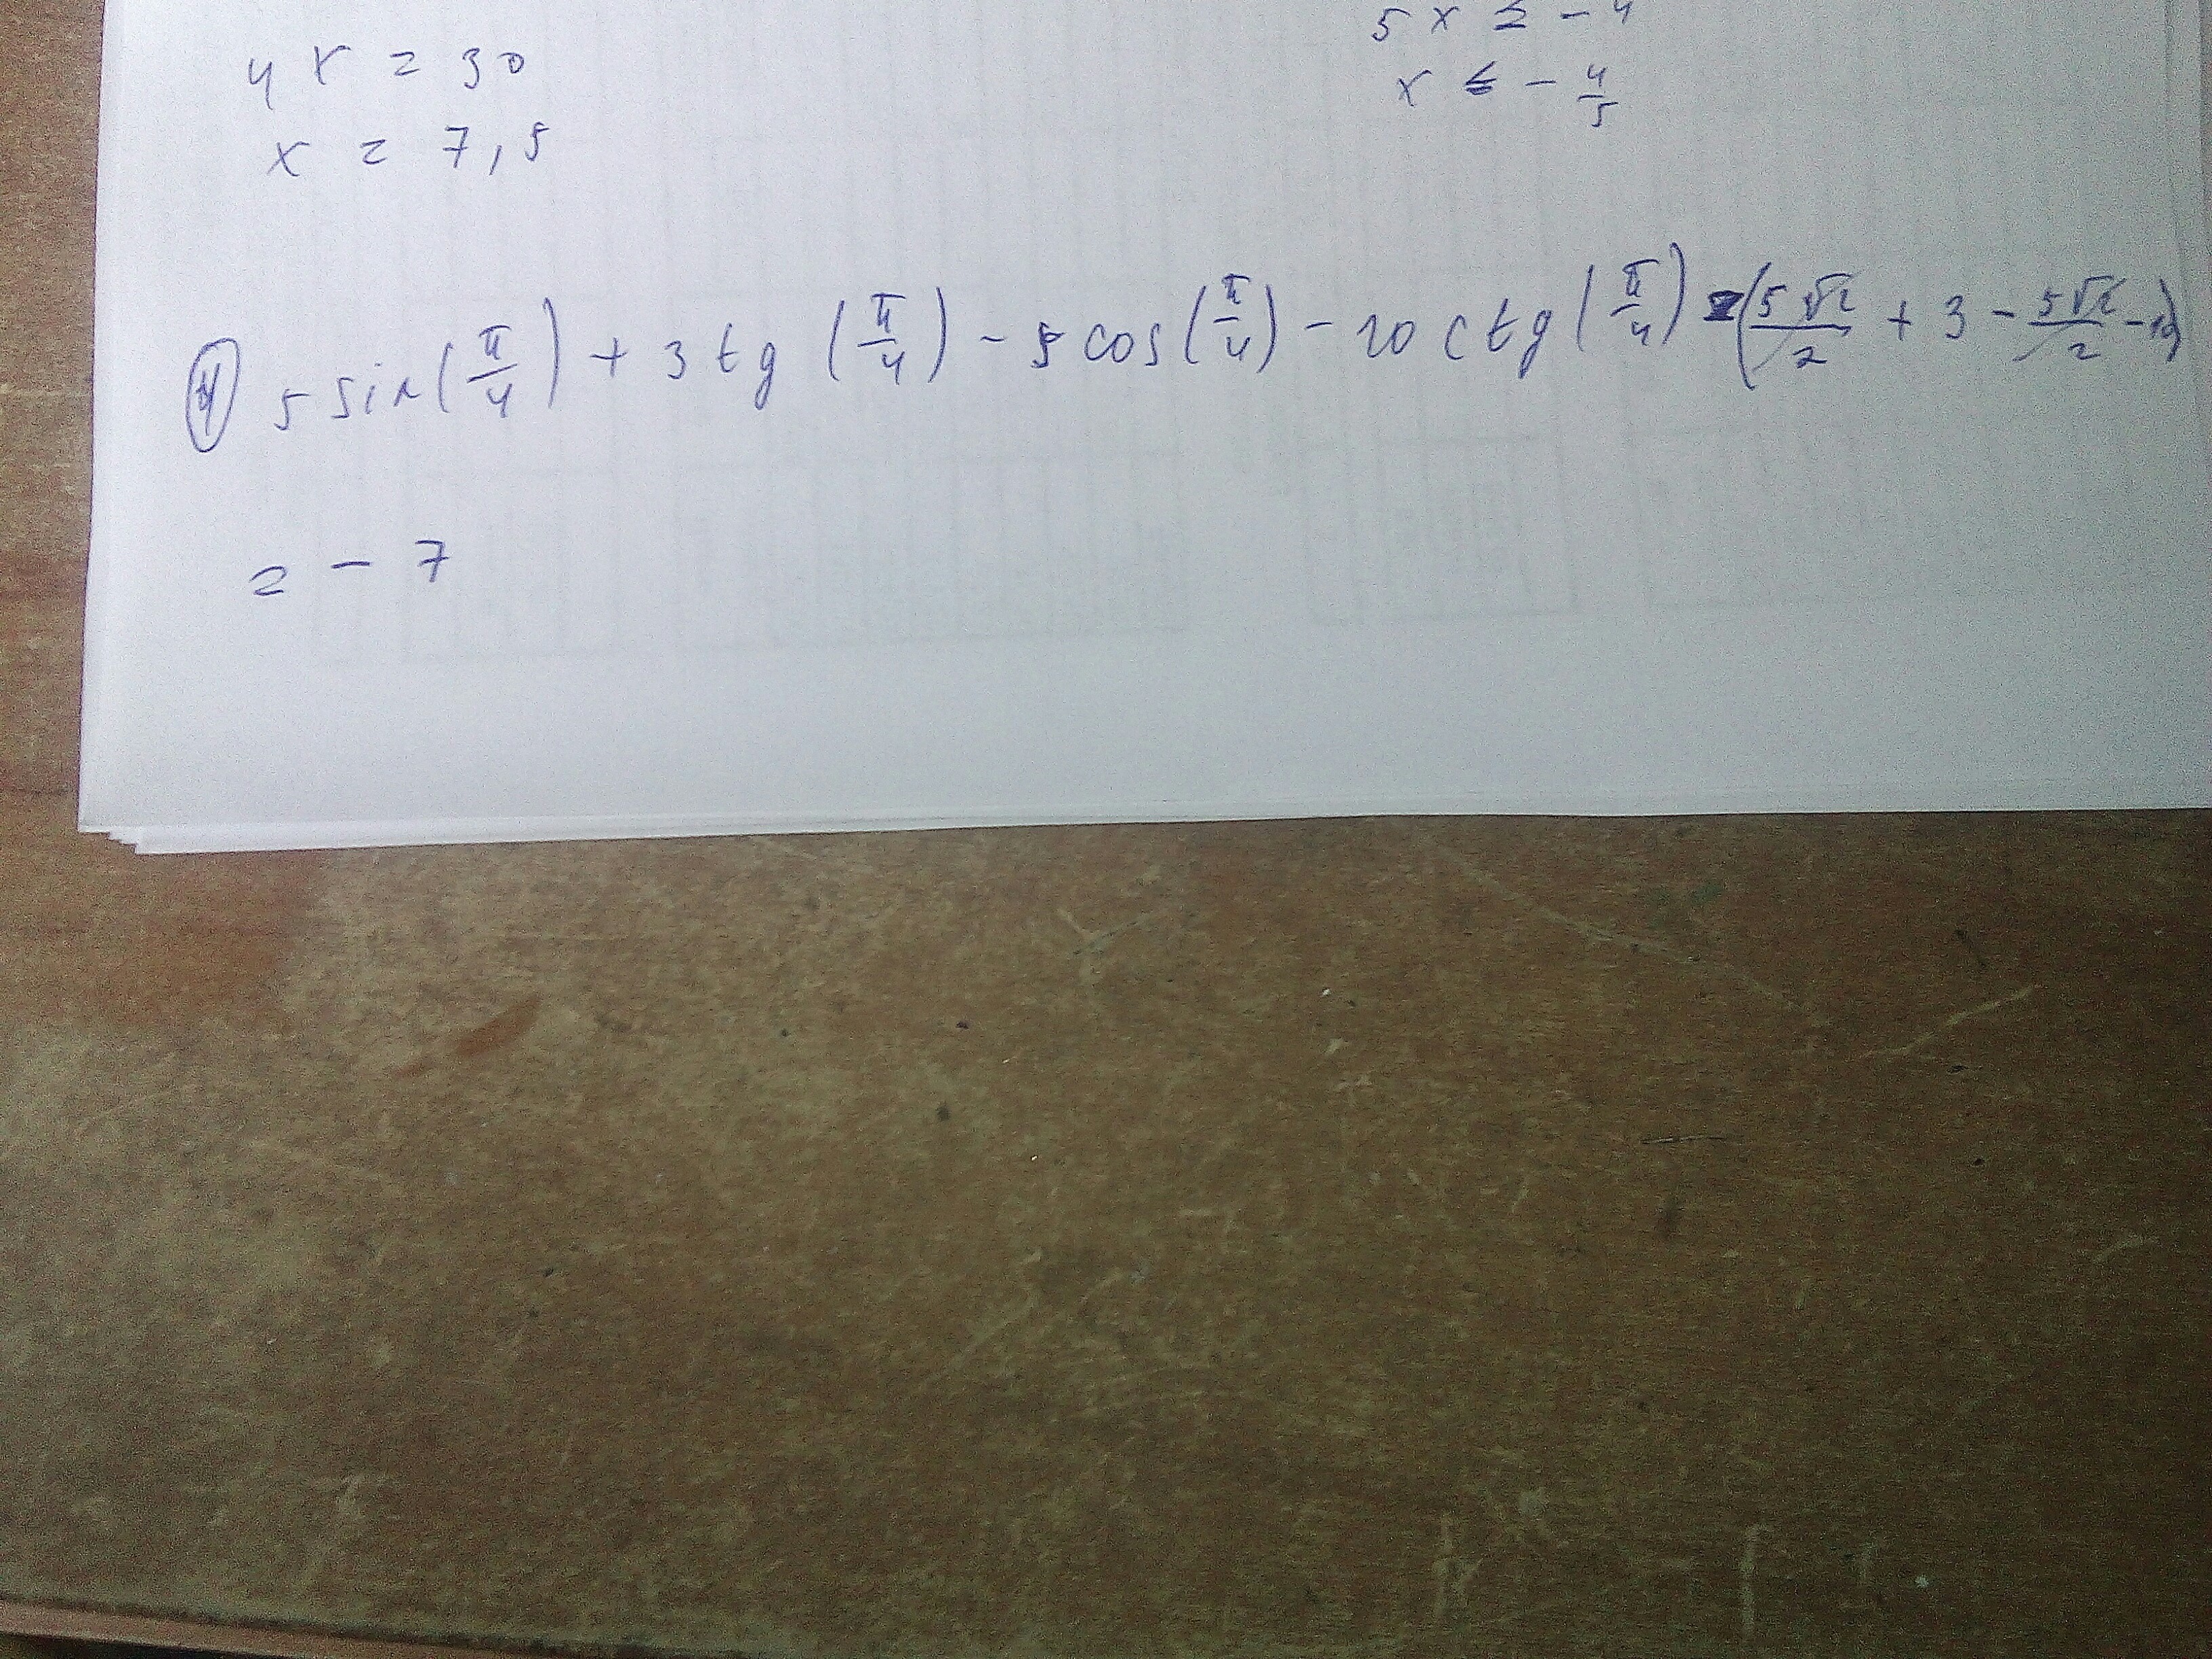 4x = 30
x = 7,5
5x ≤ -4
x ≤ - 4/5
④ 5 sin(π/4) + 3 tg (π/4) - 5 cos(π/4) - 10 ctg(π/4) = (5√2/2 + 3 - 5√2/2 - 10)
= - 7